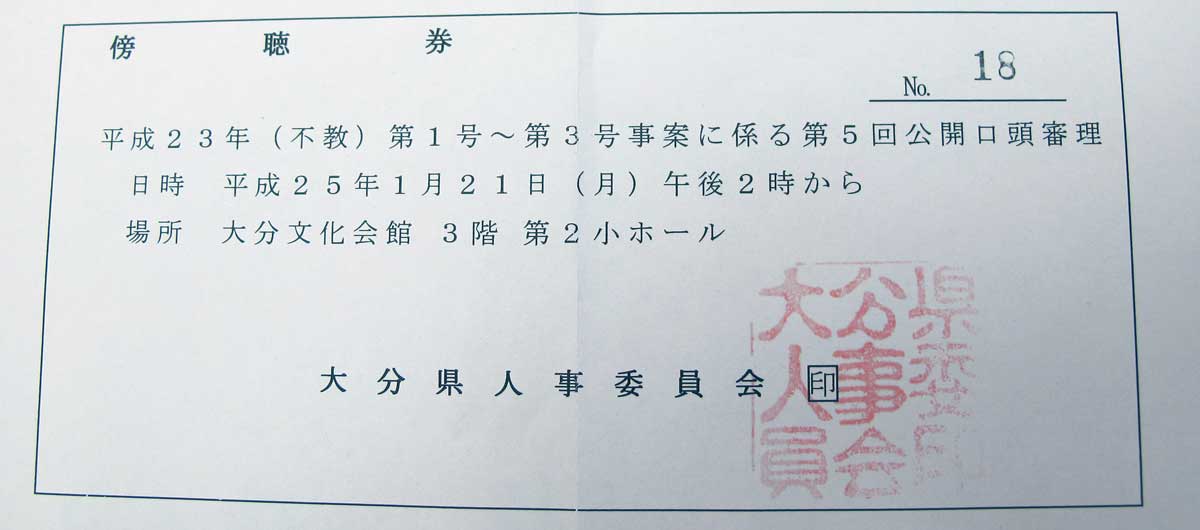 傍聴券
No. 18
平成２３年（不教）第１号～第３号事案に係る第５回公開口頭審理
日時　平成２５年１月２１日（月）午後２時から
場所　大分文化会館　３階　第２小ホール
大分県人事委員会　印
大分県
人事委
員会印